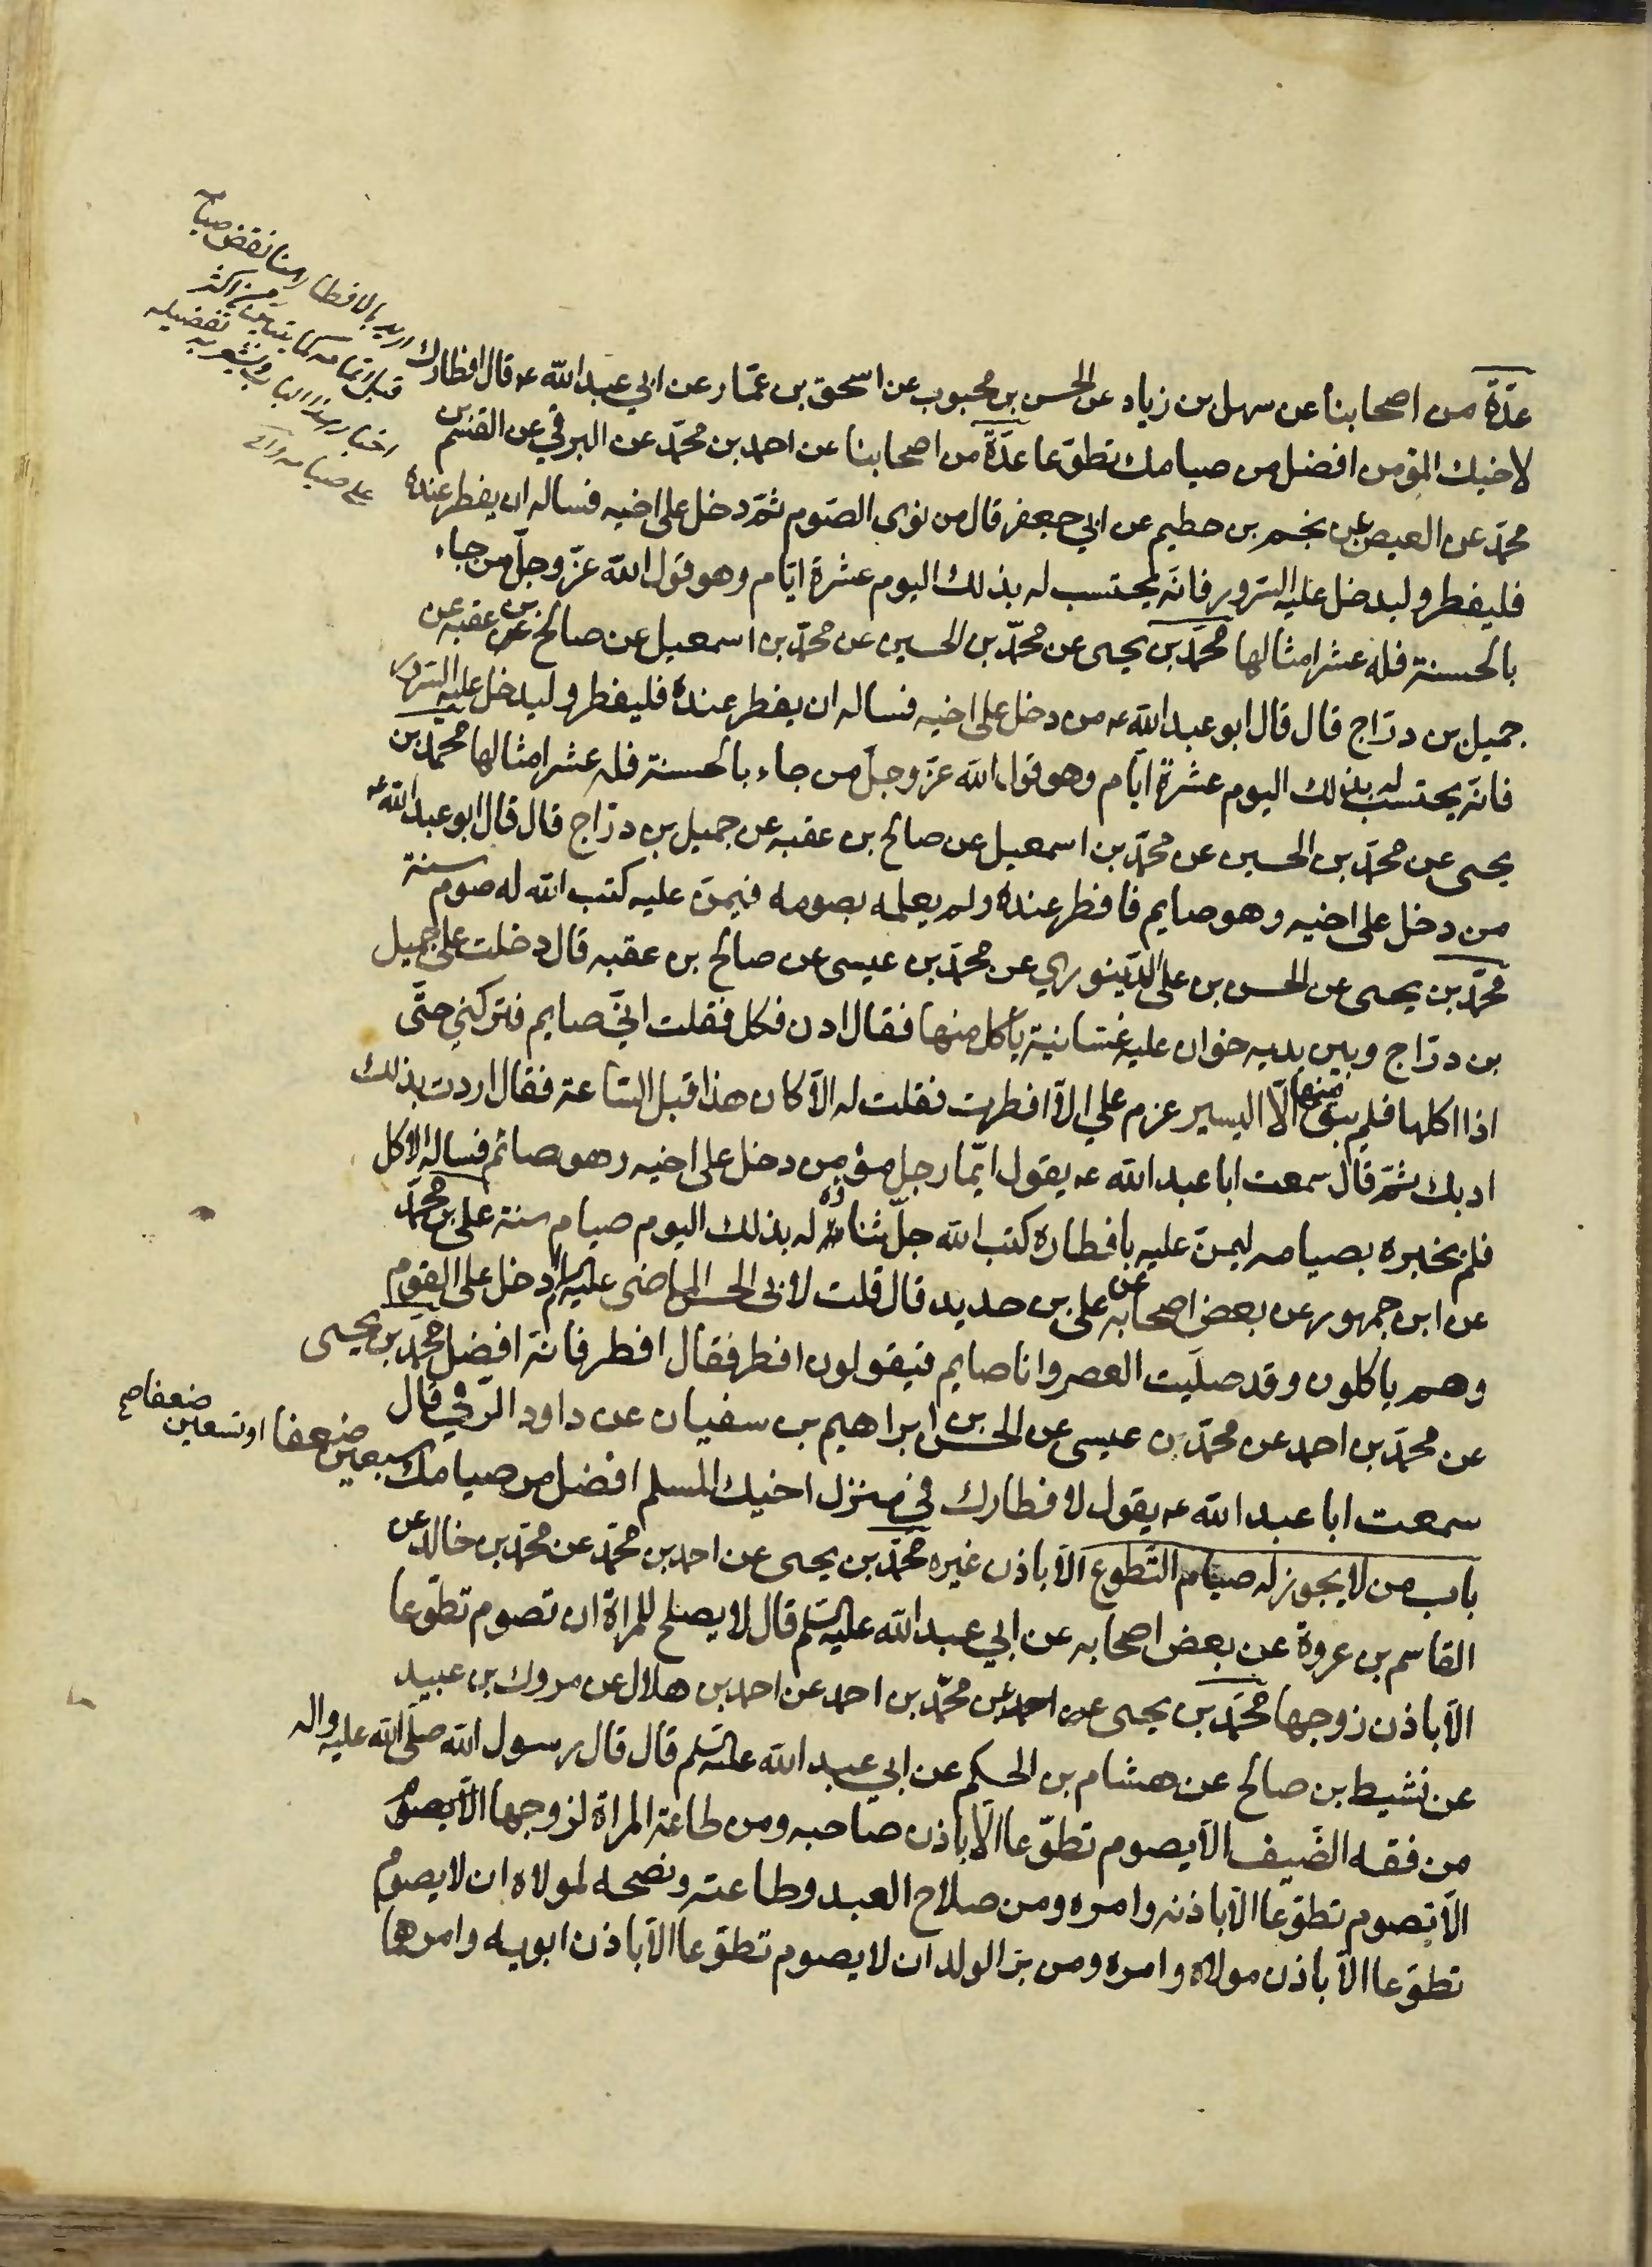 عدّة من اصحابنا عن سهل بن زياد عن الحسن بن محبوب عن اسحق بن عمّار عن ابي عبد الله عه قال افطارك
لاخيك المؤمن افضل من صيامك تطوّعا عدّة من اصحابنا عن احمد بن محمّد عن البرقي عن القسم بن
محمّد عن العيص عن نجم بن حطيم عن ابي جعفر قال من نوى الصّوم ثمّ دخل على اخيه فساله ان يفطر عنده
فليفطر وليدخل عليه السّرور فانّه يحتسب له بذلك اليوم عشرة ايّام وهو قول الله عزّ وجلّ من جاء
بالحسنة فله عشر امثالها محمّد بن يحيى عن محمّد بن الحسين عن محمّد بن اسمعيل عن صالح بن عقبه عن
جميل بن درّاج قال قال ابو عبد الله عه من دخل على اخيه فساله ان يفطر عنده فليفطر وليدخل عليه السّرور
فانّه يحتسب له بذلك اليوم عشرة ايّام وهو قول الله عزّ وجلّ من جاء بالحسنة فله عشر امثالها محمّد بن
يحيى عن محمّد بن الحسين عن محمّد بن اسمعيل عن صالح بن عقبه عن جميل بن درّاج قال قال ابو عبد الله عه
من دخل على اخيه وهو صايم فافطر عنده ولم يعلمه بصومه فيمنّ عليه كتب الله له صوم سنة
محمّد بن يحيى عن الحسن بن على الدّينوري عن محمّد بن عيسى عن صالح بن عقبه قال دخلت على جميل
بن درّاج وبين يديه خوان عليه غسّانية ياكل منها فقال ادن فكل فقلت انّي صايم فتركني حتّى
اذا اكلها فلم يبق منها الّا اليسير عزم علي الّا افطرت فقلت له الّا كان هذا قبل السّاعة فقال اردت بذلك
ادبك ثمّ قال سمعت ابا عبد الله عه يقول ايّما رجل مؤمن دخل على اخيه وهو صائم فساله الاكل
فلم يخبره بصيامه ليمنّ عليه بافطاره كتب الله جلّ ثناؤه له بذلك اليوم صيام سنة على بن محمّد
عن ابن جمهور عن بعض اصحابه عن على بن حديد قال قلت لابى الحسن الماضى عليه السلام ادخل على القوم
وهم ياكلون وقد صلّيت العصر وانا صايم فيقولون افطر فقال افطر فانّه افضل محمّد بن يحيى
عن محمّد بن احمد عن محمّد بن عيسى عن الحسن بن ابراهيم بن سفيان عن داود الرّقي قال
سمعت ابا عبد الله عه يقول لافطارك في منزل اخيك المسلم افضل من صيامك سبعين ضعفا او تسعين ضعفا صح
باب من لا يجوز له صيام التّطوع الّا باذن غيره محمّد بن يحيى عن احمد بن محمّد عن محمّد بن خالد عن
القاسم بن عروة عن بعض اصحابه عن ابي عبد الله عليه السّلم قال لا يصلح للمراة ان تصوم تطوّعا
الّا باذن زوجها محمّد بن يحيى عن احمد عن محمّد بن احمد عن احمد بن هلال عن مروك بن عبيد
عن نشيط بن صالح عن هشام بن الحكم عن ابي عبد الله عليه السّلم قال قال رسول الله صلّى الله عليه واله
من فقه الضّيف الّا يصوم تطوّعا الّا باذن صاحبه ومن طاعة المراة لزوجها الّا يصوم
الّا تصوم تطوّعا الّا باذنه وامره ومن صلاح العبد وطاعته ونصحه لمولاه ان لا يصوم
تطوّعا الّا باذن مولاه وامره ومن برّ الولد ان لا يصوم تطوّعا الّا باذن ابويه وامرهما